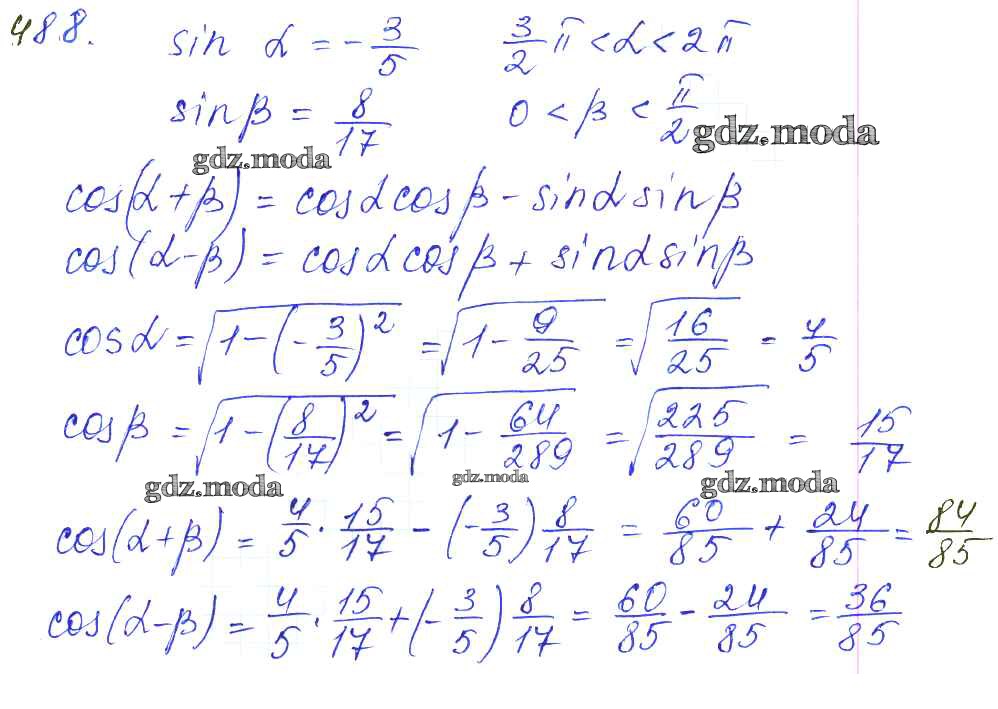 488.
sin α = -3/5     3/2 π < α < 2π
sin β = 8/17     0 < β < π/2
gdz.moda
gdz.moda
cos(α+β) = cosα cosβ - sinα sinβ
cos(α-β) = cosα cosβ + sinα sinβ
cosα = √(1-(-3/5)²) = √(1-9/25) = √(16/25) = 4/5
cosβ = √(1-(8/17)²) = √(1-64/289) = √(225/289) = 15/17
gdz.moda gdz.moda gdz.moda
cos(α+β) = 4/5 · 15/17 - (-3/5) 8/17 = 60/85 + 24/85 = 84/85
cos(α-β) = 4/5 · 15/17 + (-3/5) 8/17 = 60/85 - 24/85 = 36/85